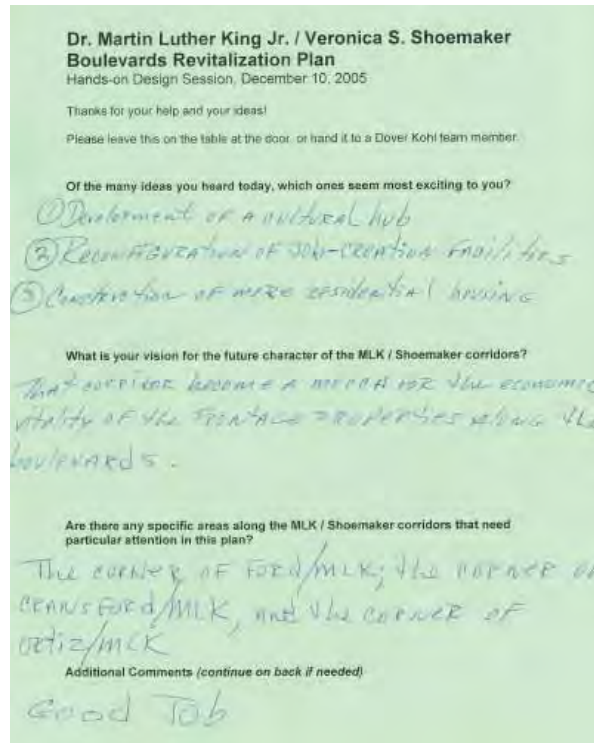 Dr. Martin Luther King Jr. / Veronica S. Shoemaker
Boulevards Revitalization Plan
Hands-on Design Session, December 10, 2005
Thanks for your help and your ideas!
Please leave this on the table at the door, or hand it to a Dover Kohl team member.
Of the many ideas you heard today, which ones seem most exciting to you?
① Development of A cultural hub
② Reconfiguration of job-creation facilities
③ Construction of more residential housing
What is your vision for the future character of the MLK / Shoemaker corridors?
That corridor become a mecca for the economic
vitality of the frontage properties along the
boulevards.
Are there any specific areas along the MLK / Shoemaker corridors that need
particular attention in this plan?
The corner of Ford/MLK; the corner of
Cransford/MLK, and the corner of
Ortiz/MLK
Additional Comments (continue on back if needed)
Good Job